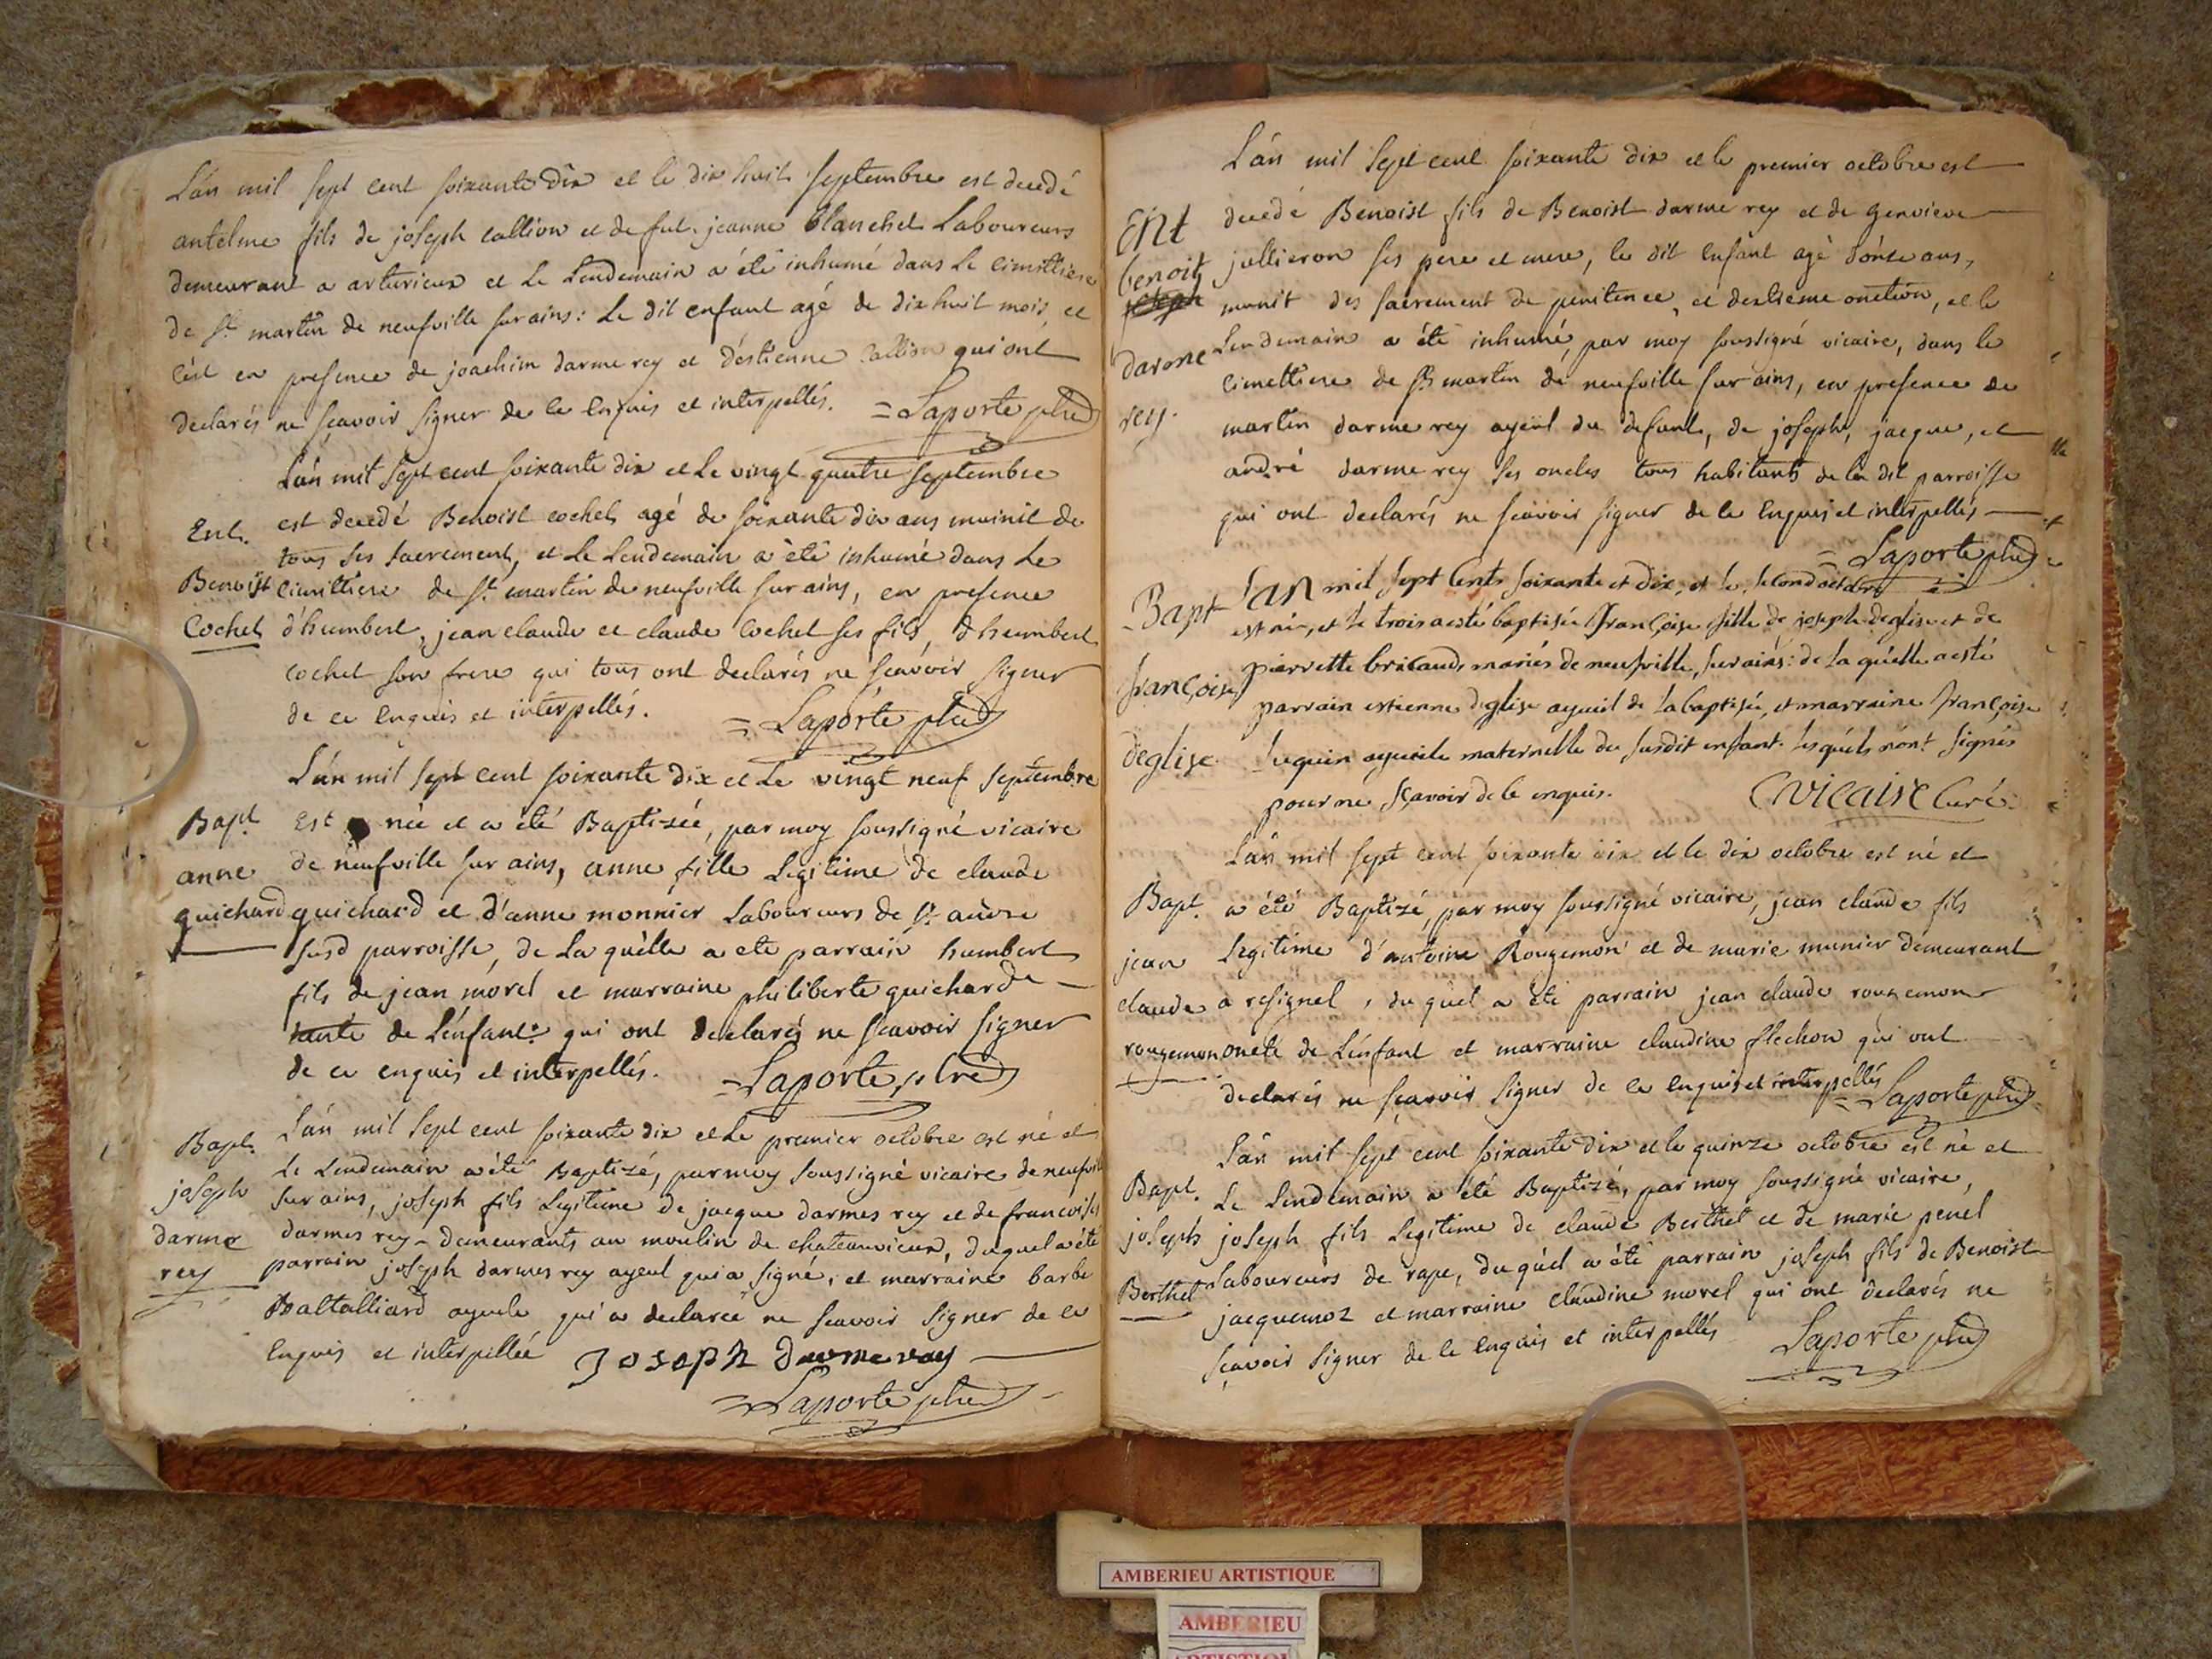 L'án mil sept cent soixante dix et le dix huit septembre est decedé
antelme fils de joseph callion et de fut jeanne blanchet Laboureurs
demeurant a arturieux et Le Lendemain a été inhumé dans Le cimittiere
de St martin de neufville sur ains: Le dit enfant agé de dix huit mois, et
c'ést en presence de joachim darme rey et d'éstienne Callion qui ont
declarés ne scavoir signer de ce enquis et interpellés. = Laporte ptre
L'án mil sept cent soixante dix et Le vingt quatre septembre
Ent. est decedé Benoist cochet agé de soixante dix ans muinit de
tous ses sacrement, et Le Lendemain a été inhumé dans Le
Benoist cimittiere de St martin de neufville sur ains, en presence
Cochet d'humbert, jean claude et claude Cochet ses fils, d'humbert
cochet son frere qui tous ont declarés ne scavoir signer
de ce enquis et interpellés. = Laporte ptre
L'án mil sept cent soixante dix et Le vingt neuf septembre
Bapt. Est née et a été Baptisée, par moy soussigné vicaire
anne de neufville sur ains, anne fille Legitime de claude
guichard guichard et d'anne monnier Laboureurs de St
susd parroisse, de La quélle a ete parrain humbert
fils de jean morel et marraine philiberte guicharde
tante de L'énfant. qui ont declarés ne scavoir signer
de ce enquis et interpellés. = Laporte ptre
Bapt. L'án mil sept cent soixante dix et Le premier octobre est né et
Le Lendemain a été Baptizé, par moy soussigné vicaire de neufvil
joseph sur ains, joseph fils Legitime de jacque darmes rey et de francoise
darme darmes rey - demeurants au moulin de chateauvieux, duquel a été
rey parrain joseph darmes rey ayeul qui a signé, et marraine barbe
Baltalliard ayeule qui a declaree ne scavoir signer de ce
Enquis et interpellée Joseph darmerey
= Laporte ptre
L'án mil sept cent soixante dix et le premier octobre est
Ent decedé Benoist fils de Benoist darme rey et de genvieve
benoit jullieron ses pere et mere, le dit enfant agé d'ónze ans,
joseph munit des sacrement de penitence, et dextreme onction, et le
darme Lendemain a été inhumé, par moy soussigné vicaire, dans le
cimettiere de St martin de neufville sur ains, en presence de
rey. martin darme rey ayeul du defunt, de joseph, jacque, et
andré darme rey ses oncles tous habitants de la dit parroisse
qui ont declarés ne scavoir signer de ce Enquis et interpellés
= Laporte ptre
Bapt L'AN mil sept Cents soixante et dix, et le second octobre
est née, et le trois a esté baptisée Françoise fille de joseph deglise et de
pierrette bricaude mariés de neufville, sur ains: de la quélle a esté
françoise parrain estienne deglise ayeuil de la baptisée, et marraine Françoise
deglise Luquin ayeuile maternelle du susdit enfant. lesquéls n'ont signés
pour ne sçavoir de ce enquis. Cvicaire Curé.
L'án mil sept cent soixante dix et le dix octobre est né et
Bapt. a été Baptizé par moy soussigné vicaire, jean claude fils
jean Legitime d'antoine Rougemon et de marie munier demeurant
claude a resignel, du quel a été parrain jean claude rougemon
rougemon oncle de L'énfant et marraine claudine flechon qui ont
declarés ne scavoir signer de ce Enquis et interpellés = Laporte ptre
L'án mil sept cent soixante dix et le quinze octobre est né et
Bapt. Le Lendemain a été Baptizé, par moy soussigné vicaire,
joseph joseph fils Legitime de claude Berthet et de marie penel
Berthet Laboureurs de rape, du quel a été parrain joseph fils de Benoist
jacquemoz et marraine claudine morel qui ont declarés ne
scavoir signer de ce Enquis et interpellés Laporte ptre
AMBERIEU ARTISTIQUE
AMBERIEU